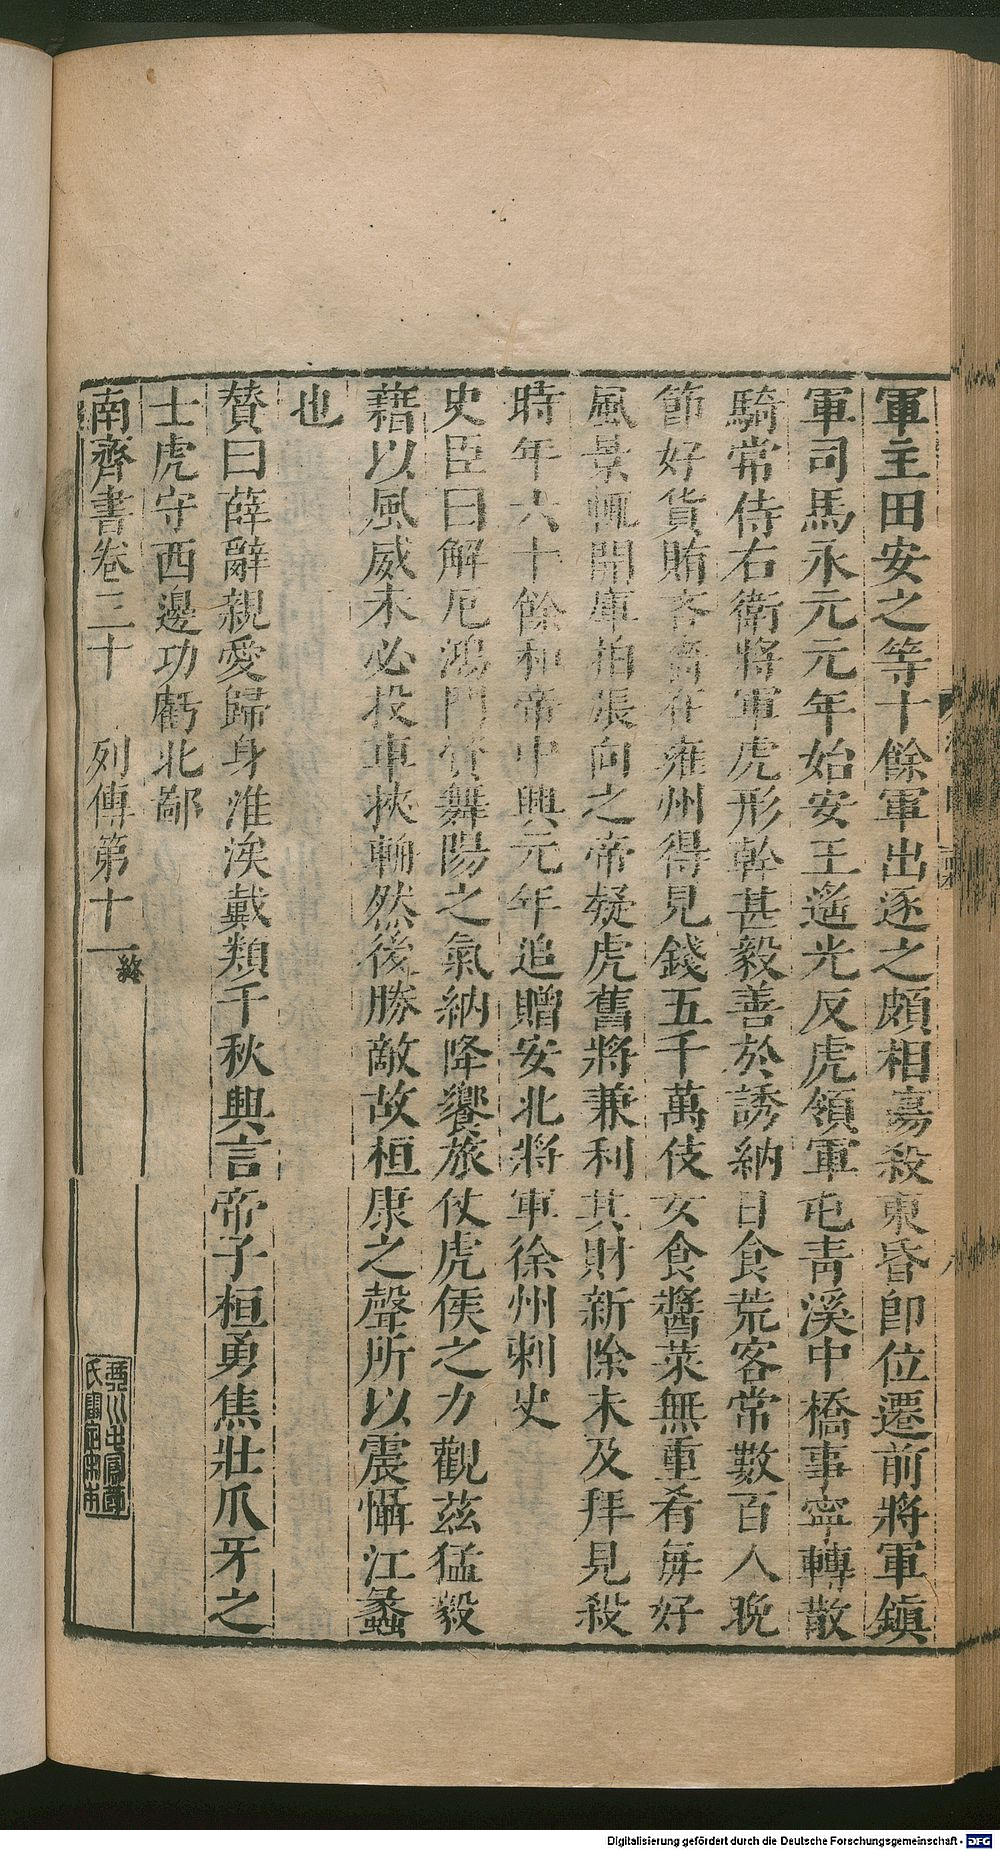 軍主田安之等十餘軍出逐之頗相傷殺東昏即位遷前將軍鎮
軍司馬永元元年始安王遙光反虎領軍屯靑溪中橋事寧轉散
騎常侍右衛將軍虎形幹甚毅善於誘納日食荒客常數百人晚
節好貨賄吝嗇在雍州得見錢五千萬伎女食醬菜無重肴每好
風景輒開庫拍張向之帝疑虎舊將兼利其財新除未及拜見殺
時年六十餘和帝中興元年追贈安北將軍徐州刺史
史臣曰解厄鴻門資舞陽之氣納降饗旅仗虎侯之力觀茲猛毅
藉以風威未必投車挾輈然後勝敵故桓康之聲所以震懾江蠡
也
贊曰薛辭親愛歸身淮涘戴類千秋興言帝子桓勇焦壯爪牙之
士虎守西邊功虧北鄙
南齊書卷三十 列傳第十一 終
氏審定宋本
Digitalisierung gefördert durch die Deutsche Forschungsgemeinschaft - DFG